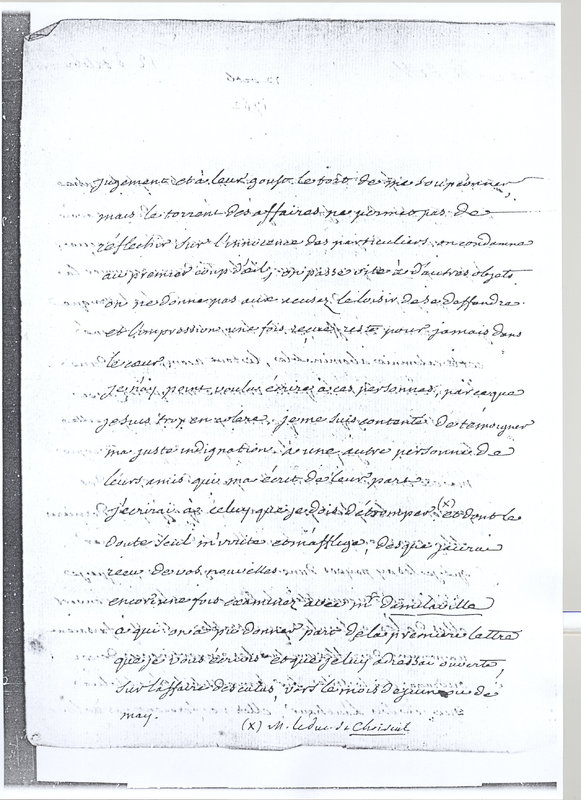 jugement et à leur goust le tort de me soupçonner,
mais le torrent des affaires ne permet pas de
réflechir sur l'innocence des particuliers. on condamne
au premier coup d'œil, on passe vite à d'autres objets
on ne donne pas aux acusez le loisir de se deffendre
et l'impression une fois receue reste pour jamais dans
le cœur.
je n'ay point voulu écrire à ces personnes, parceque
je suis trop en colere. je me suis contenté de témoigner
ma juste indignation à une autre personne de
leurs amis qui m'a écrit de leur part.
j'écrirai à celuy que je dois détromper (x) et dont le
doute seul m'irrite et m'afflige, dès que j'aurai
receu de vos nouvelles
encor une fois examinez avec mr. damilaville
à qui on a pu donner part de la premiere lettre
que je vous écrivis et que je luy adressai ouverte,
sur l'affaire des calas, vers le mois de juin ou de
may.
(x) M. le duc de Choiseul